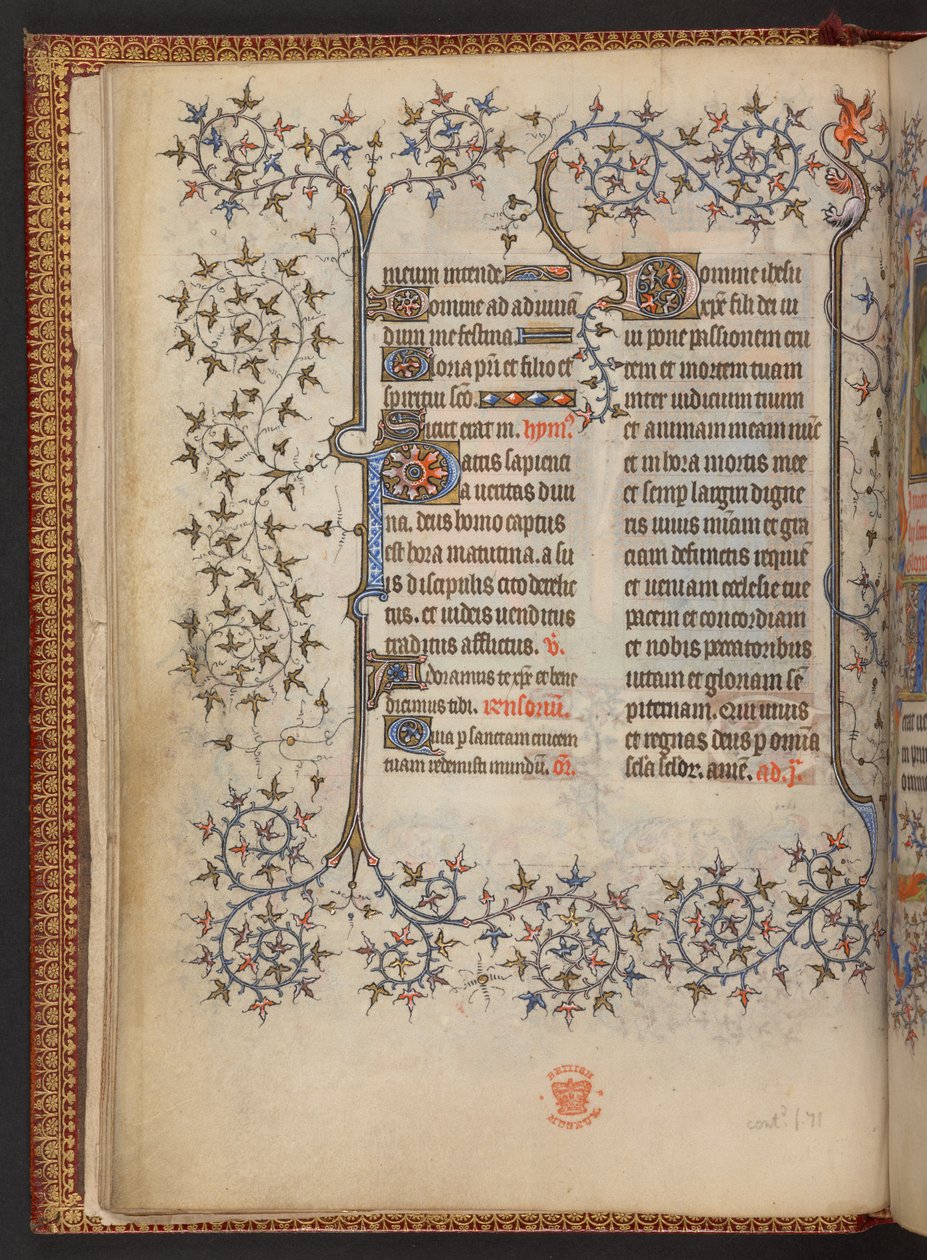 meum intende.
Domine ad adiuuā
dum me festina.
Gloria pr̄i et filio et
spiritui sc̄o.
Sicut erat in. hymꝰ
Patris sapienci
a ueritas diui
na. deus homo captus
est hora matutina. a su
is discipulis cito derelic
tus. et iudeis uenditus
traditus afflictus. v̄.
Adoramus te xp̄e et bene
dicimus tibi. rensoriū.
Quia p sanctam crucem
tuam redemisti mundū. or̄.
Domine ihesu
xp̄e fili dei ui
ui pone passionem cru
cem et mortem tuam
inter iudicium tuum
et animam meam nūc
et in hora mortis mee
et semp largiri digne
ris uiuis mīam et gra
ciam defunctis requiē
et ueniam ecclesie tue
pacem et concordiam
et nobis peccatoribus
uitam et gloriam sē
piternam. Qui uiuis
et regnas deus p omīa
scl̄a scl̄or. amē. ad. j.
BRITISH
MUSEUM
contd f. 71